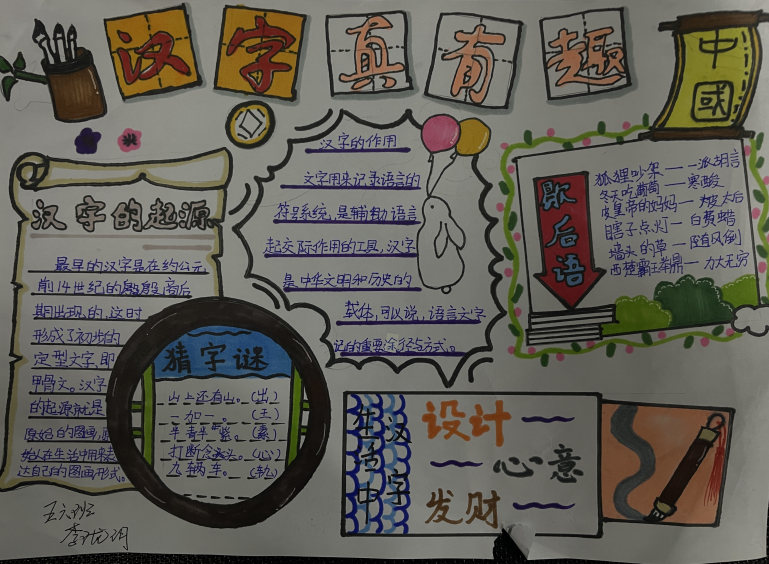 汉字真有趣
中国
汉字的起源
最早的汉字是在约公元
前14世纪的殷商后
期出现的,这时
形成了初步的
定型文字,即
甲骨文。汉字
的起源就是
原始的图画,原
始人在生活中用来表
达自己的图画形式。
猜字谜
山上还有山。(出)
一加一。(王)
半青半紫。(素)
打断念头。(心)
九辆车。(轨)
汉字的作用
文字用来记录语言的
符号系统,是辅助语言
起交际作用的工具,汉字
是中华文明和历史的
载体,可以说,语言文字
记的重要途径与方式。
歇后语
狐狸吵架——一派胡言
冬天吃葡萄——寒酸
皮皇帝的妈妈——太后
瞎子点灯——白费蜡
墙头的草——随风倒
西楚霸王举鼎——力大无穷
汉字
生活中
设计一
一心意
发财一
五六班